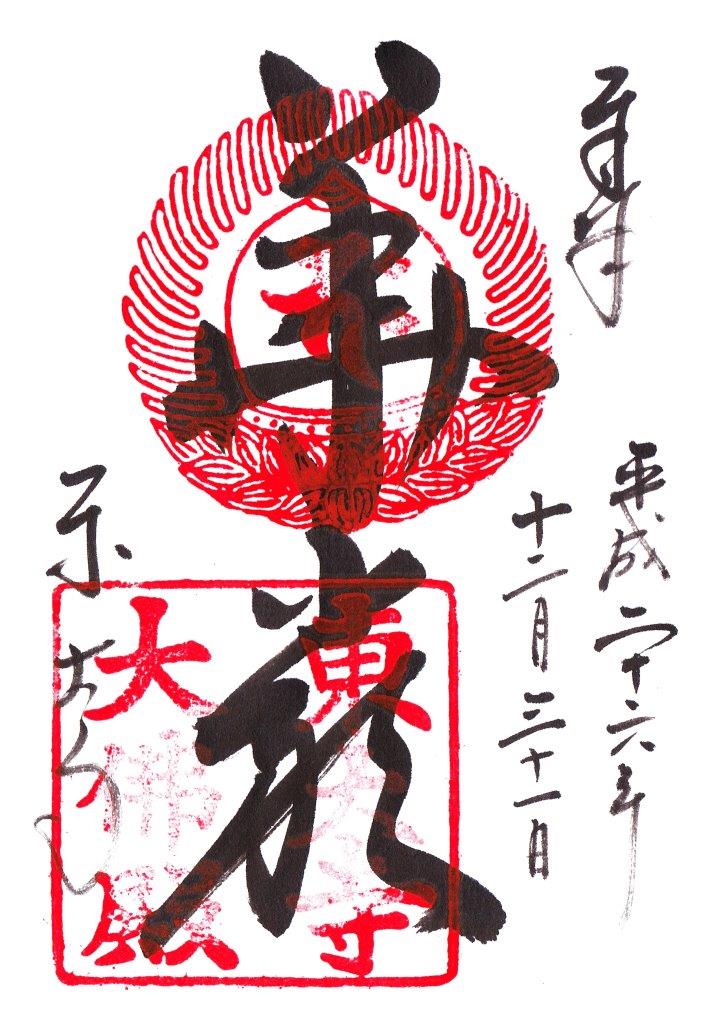 奉拝
平成二十六年
十二月三十一日
華厳
東大寺
大佛殿
東大寺